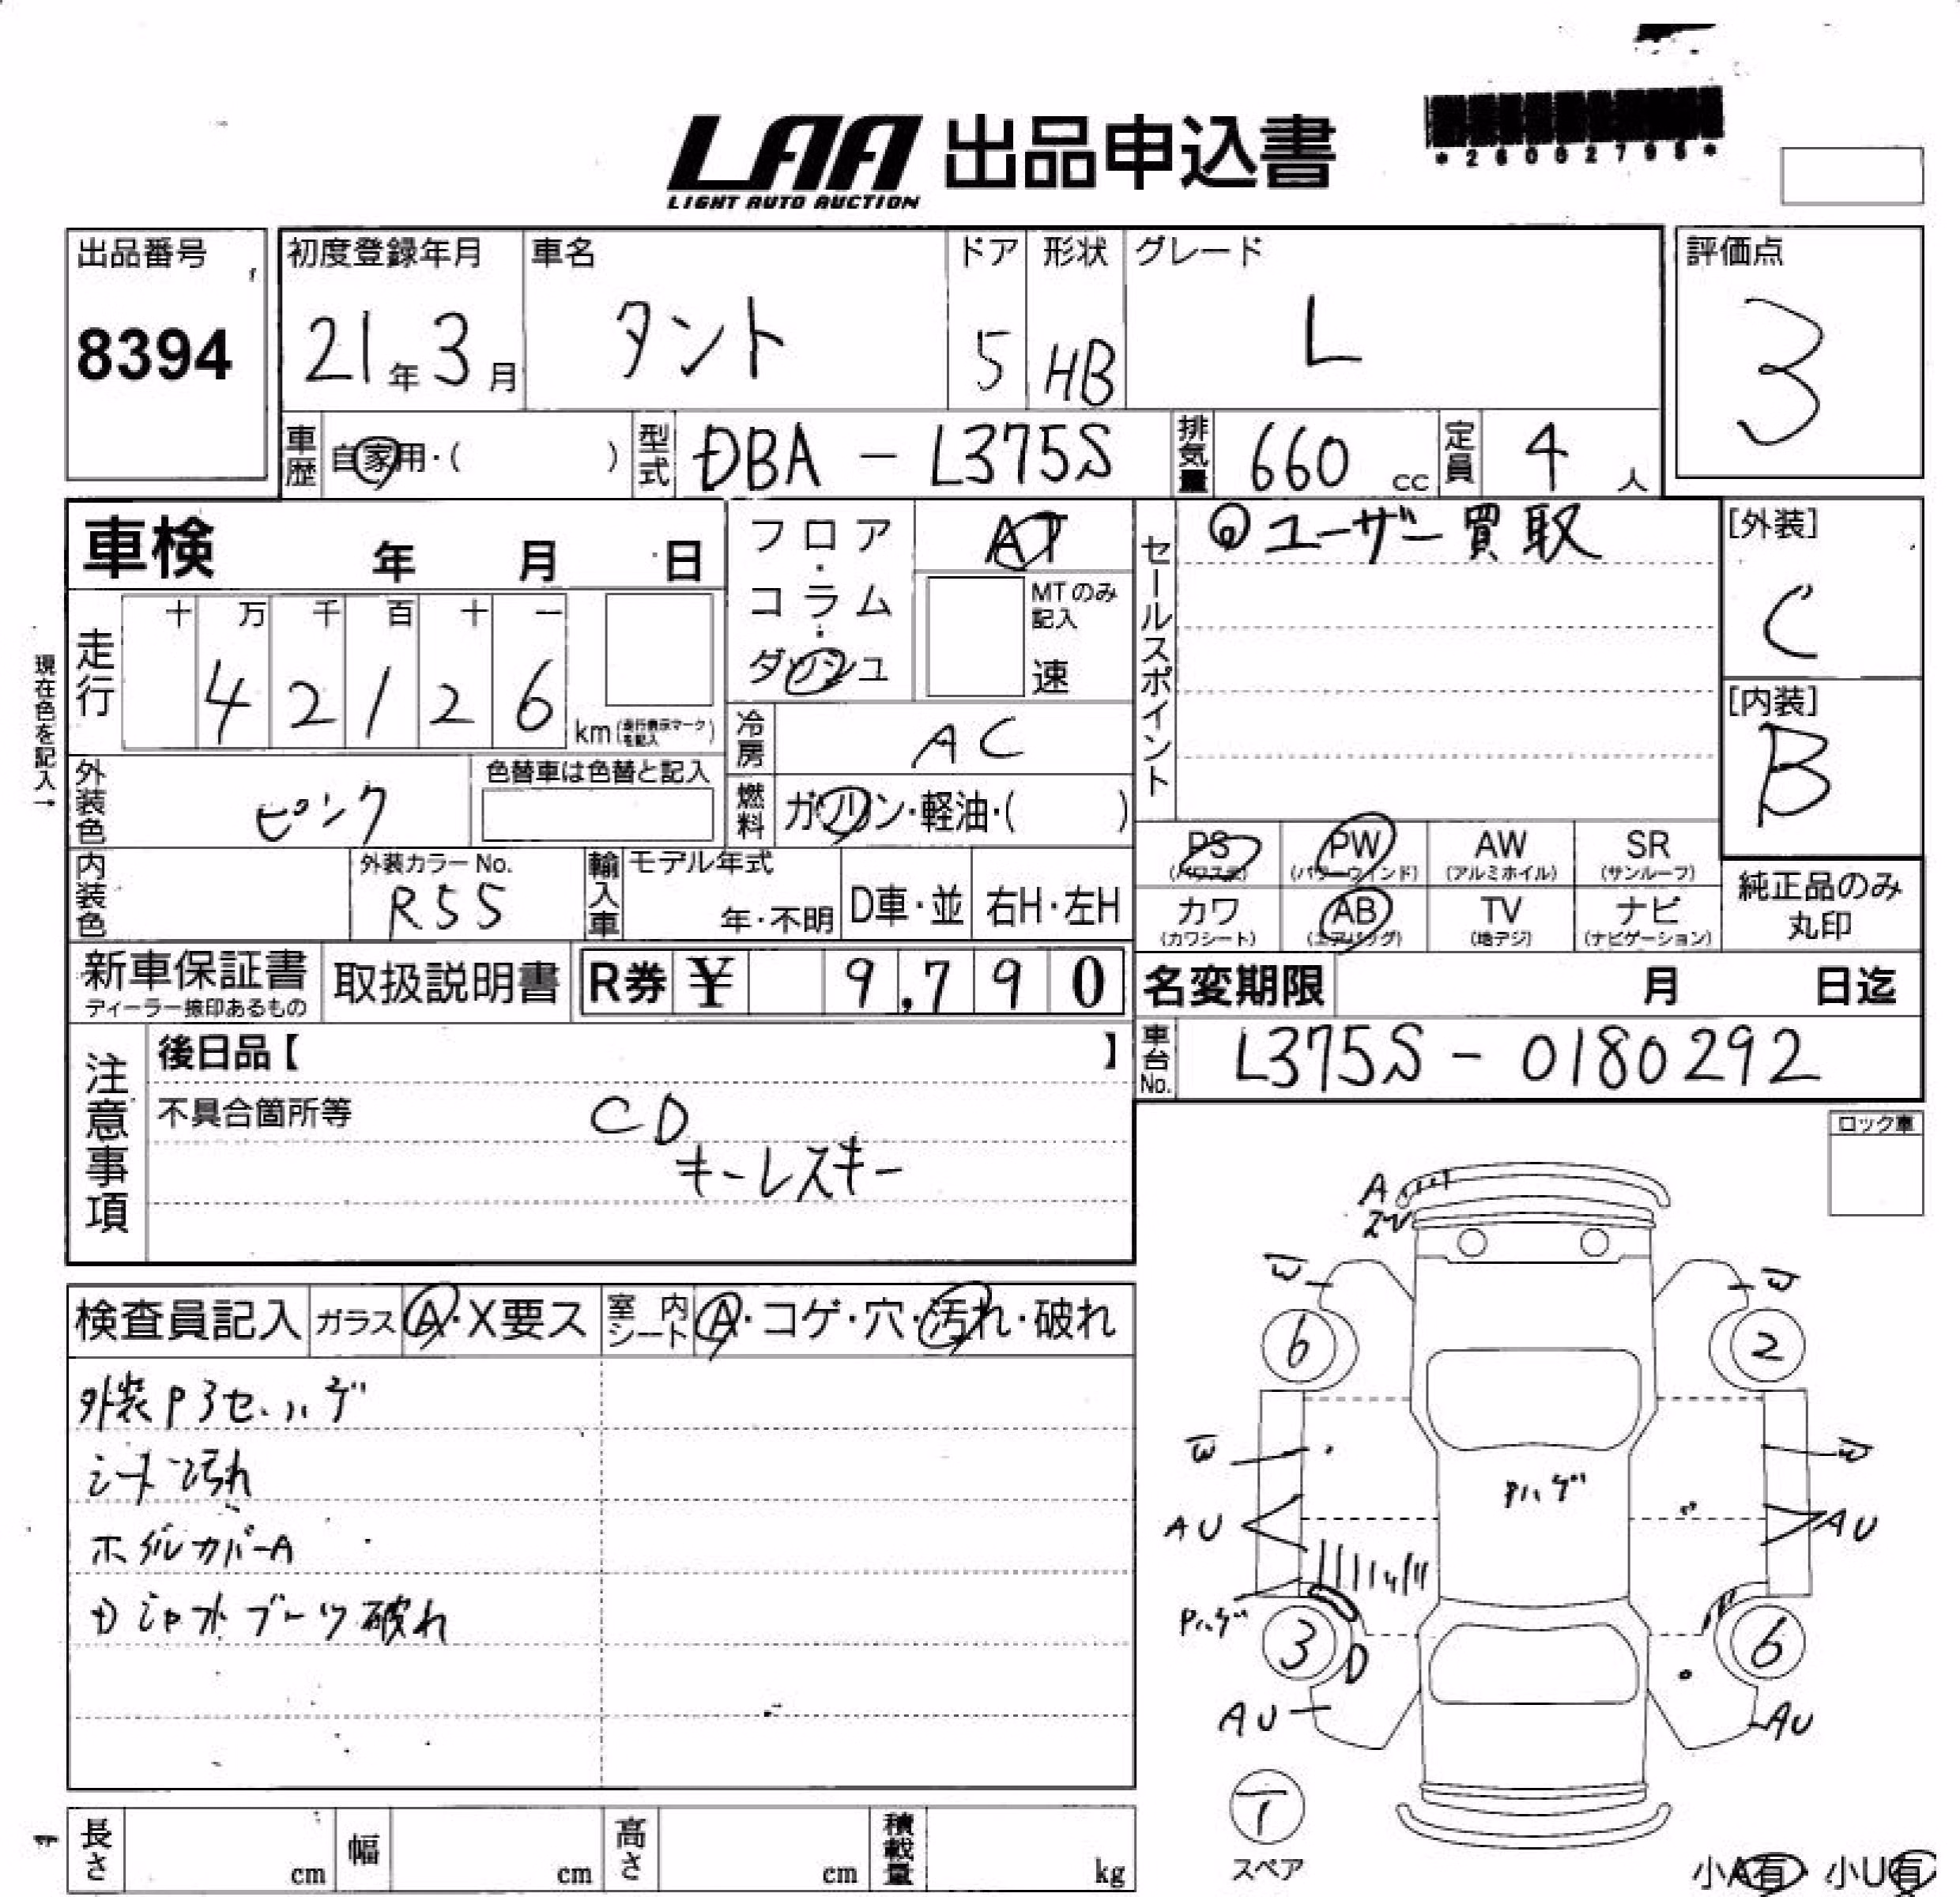 LAA 出品申込書
LIGHT AUTO AUCTION
出品番号
8394
初度登録年月 車名 ドア 形状 グレード
21年 3月 タント 5 HB L
評価点
3
車歴 自家用・( ) 型式 DBA - L375S 排気量 660 cc 定員 4 人
車検 年 月 日
フロア・コラム・ダッシュ
AT
MTのみ記入
速
セールスポイント
ユーザー買取
[外装]
C
[内装]
B
現在色を記入→
走行 十 万 千 百 十 一
4 2 1 2 6 km
冷房 AC
外装色 ピンク
色替車は色替と記入
燃料 ガソリン・軽油・( )
内装色
外装カラーNo.
R55
輸入車 モデル年式
年・不明 D車・並 右H・左H
PS (パワステ) PW (パワーウインド) AW (アルミホイル) SR (サンルーフ)
カワ (カワシート) AB (エアバッグ) TV (地デジ) ナビ (ナビゲーション)
純正品のみ
丸印
新車保証書
ディーラー捺印あるもの
取扱説明書
R券 ¥ 9,790
名変期限 月 日迄
車台No. L375S - 0180292
注意事項
後日品【 】
不具合箇所等 CD
キーレスキー
ロック車
検査員記入 ガラス A・X要ス 室内シート A・コゲ・穴・汚れ・破れ
シート汚れ
ホイルカバーA
シャフトブーツ破れ
A
W W
6 2
W W
Pハゲ
AU AU
Pハゲ
3 D 6
AU AU
T
スペア
長さ cm 幅 cm 高さ cm 積載量 kg
小A有・小U有